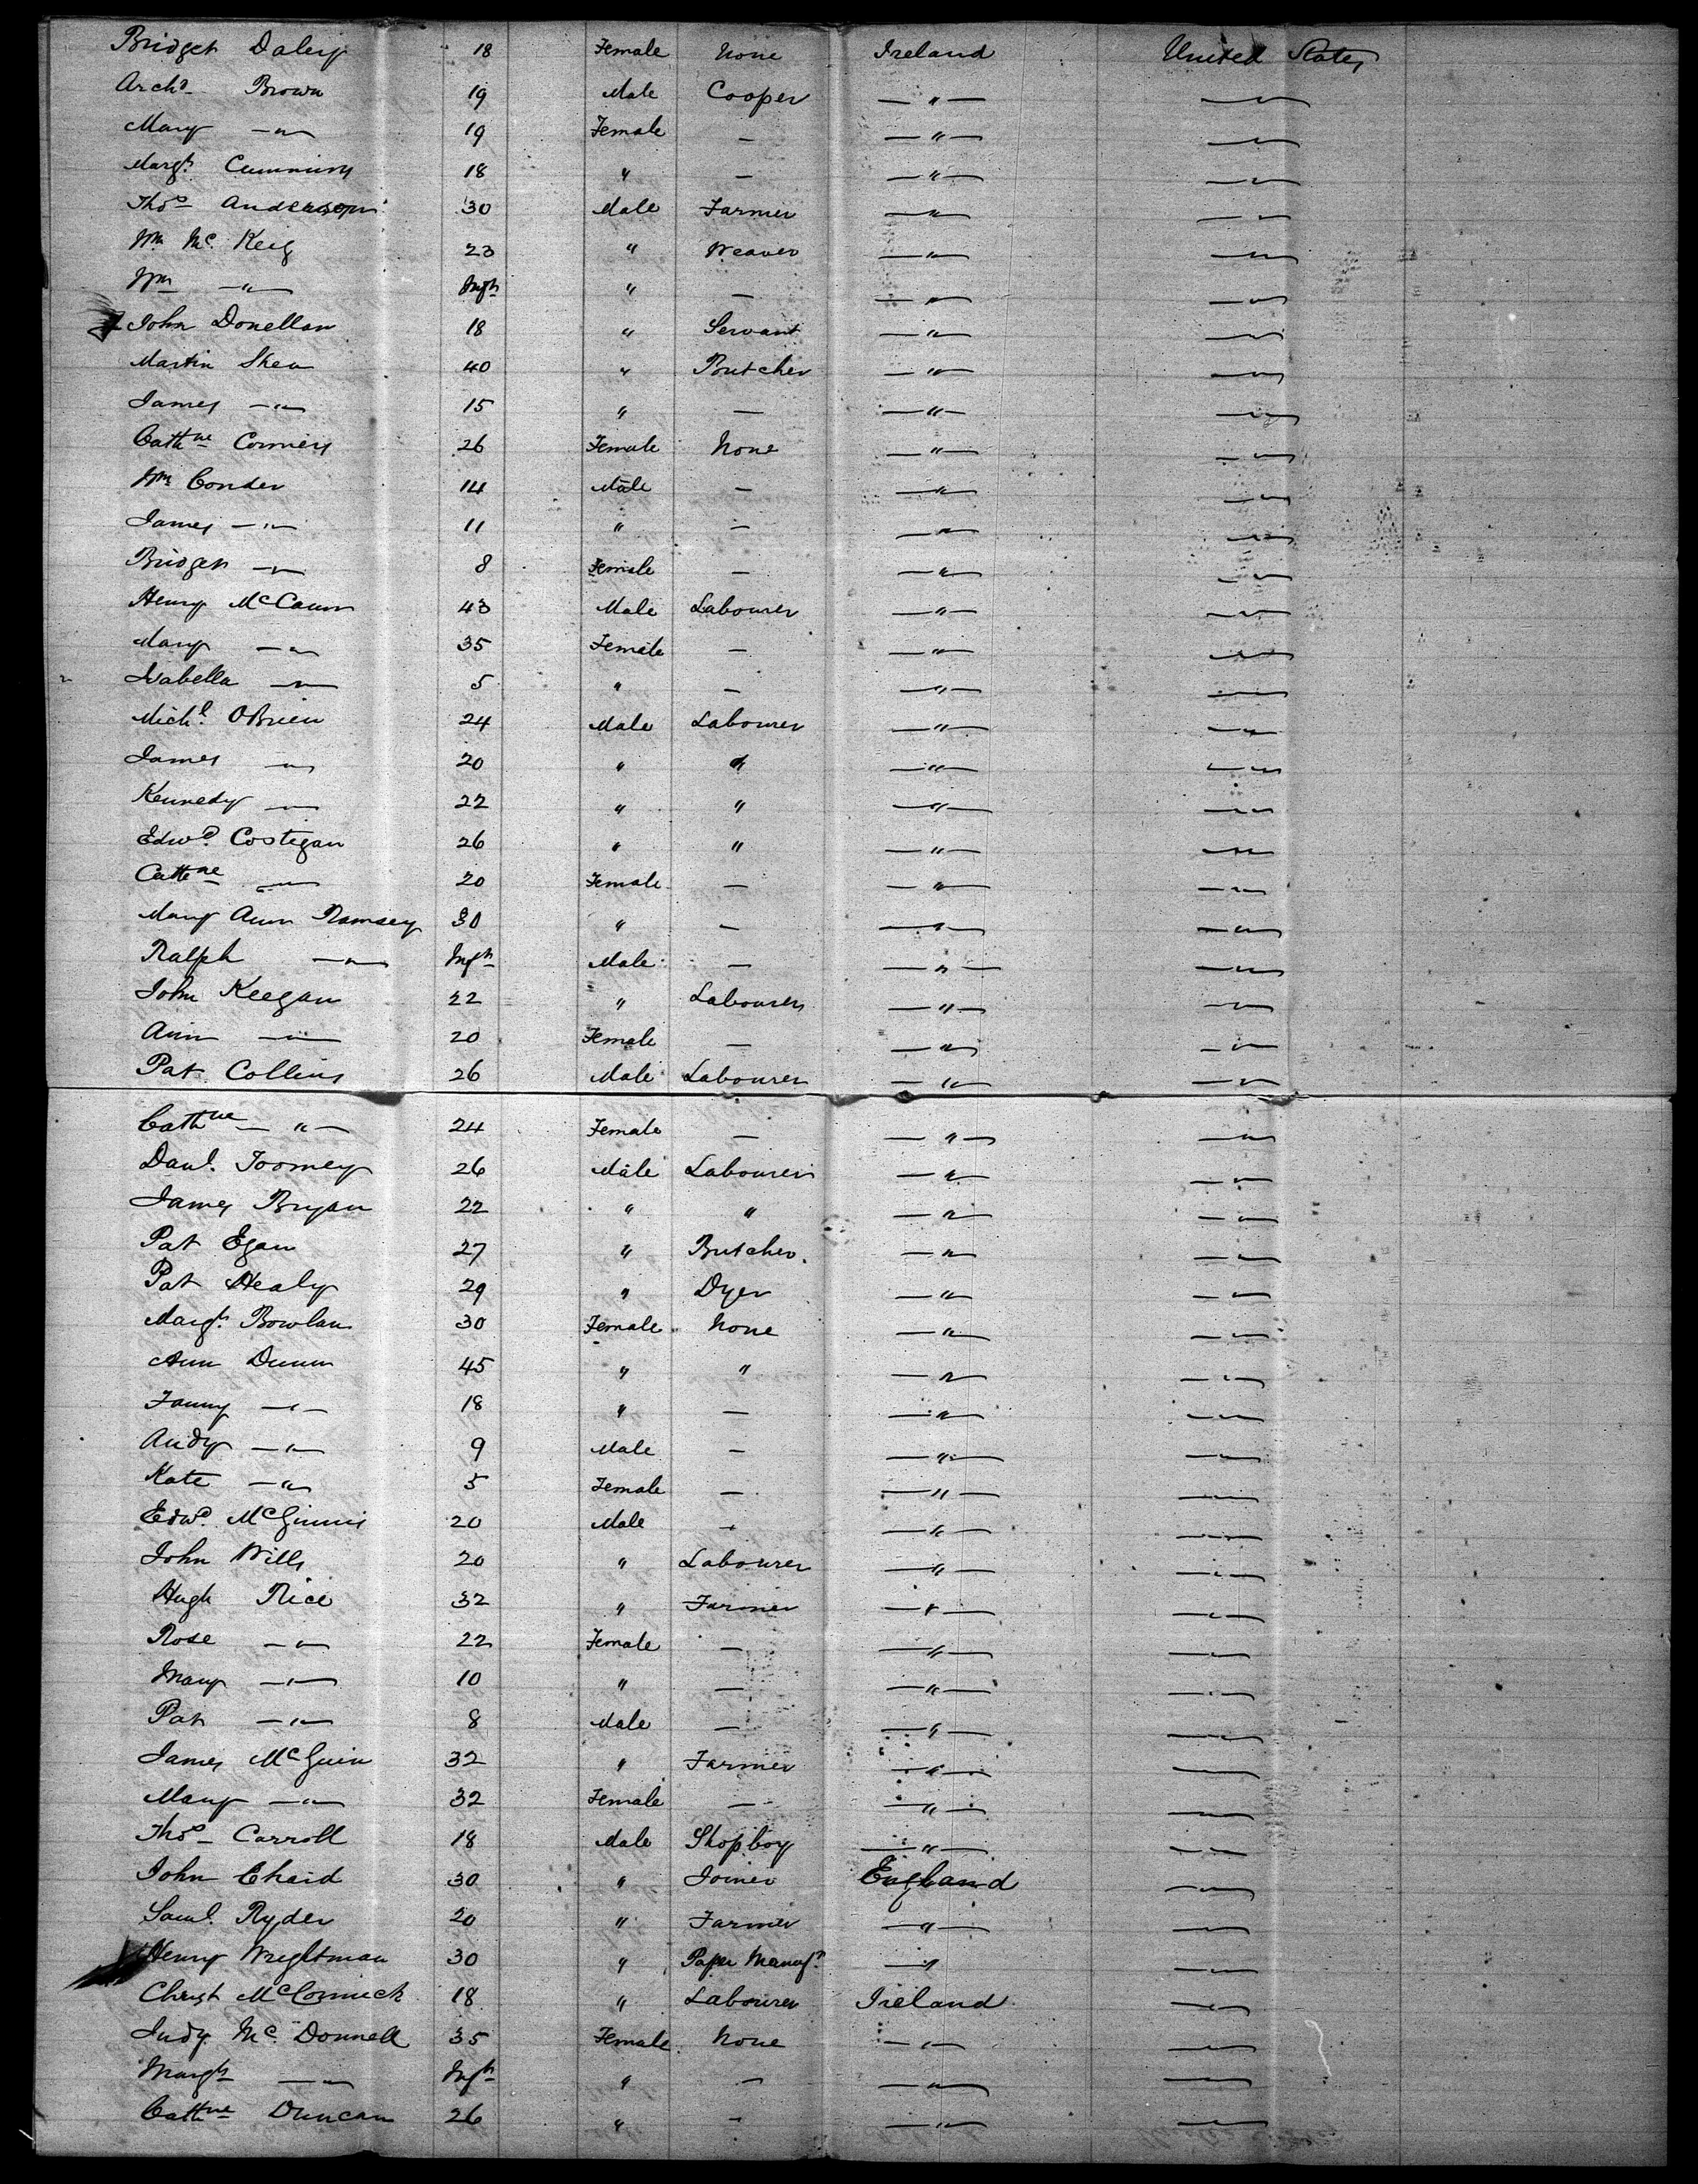 Bridget Daley 18 Female None Ireland United States
Archd Brown 19 Male Cooper — " — — " —
Mary — " — 19 Female — — " — — " —
Margt. Cummins 18 " — — " — — " —
Thos Anderson 30 Male Farmer — " — — " —
Wm Mc Keig 23 " Weaver — " — — " —
Wm — " — Inft " — — " — — " —
John Donellan 18 " Servant — " — — " —
Martin Shea 40 " Butcher — " — — " —
James — " — 15 " — — " — — " —
Cathne Conners 26 Female None — " — — " —
Wm Conder 14 Male — — " — — " —
James — " — 11 " — — " — — " —
Bridget — " — 8 Female — — " — — " —
Henry McCann 43 Male Labourer — " — — " —
Mary — " — 35 Female — — " — — " —
Isabella — " — 5 " — — " — — " —
Michl. OBrien 24 Male Labourer — " — — " —
James — " — 20 " " — " — — " —
Kennedy — " — 22 " " — " — — " —
Edwd. Costegan 26 " " — " — — " —
Cathne — " — 20 Female — — " — — " —
Mary Ann Ramsey 30 " — — " — — " —
Ralph — " — Inft Male — — " — — " —
John Keegan 22 " Labourer — " — — " —
Ann — " — 20 Female — — " — — " —
Pat Collins 26 Male Labourer — " — — " —
Cathne — " — 24 Female — — " — — " —
Danl. Toomey 26 Male Labourer — " — — " —
James Bryan 22 " " — " — — " —
Pat Egan 27 " Butcher. — " — — " —
Pat Healy 29 " Dyer — " — — " —
Margt. Bowlan 30 Female None — " — — " —
Ann Dunn 45 " " — " — — " —
Fanny — " — 18 " — — " — — " —
Andy — " — 9 Male — — " — — " —
Kate — " — 5 Female — — " — — " —
Edwd. McGinnis 20 Male — — " — — " —
John Wills 20 " Labourer — " — — " —
Hugh Rice 32 " Farmer — " — — " —
Rose — " — 22 Female — — " — — " —
Mary — " — 10 " — — " — — " —
Pat — " — 8 Male — — " — — " —
James McGuin 32 " Farmer — " — — " —
Mary — " — 32 Female — — " — — " —
Thos Carroll 18 Male Shopboy — " — — " —
John Chaid 30 " Joiner England — " —
Saml. Ryder 20 " Farmer — " — — " —
Henry Wrightman 30 " Paper Manufr — " — — " —
Christ McCormick 18 " Labourer Ireland — " —
Judy Mc Donnell 35 Female None — " — — " —
Margt — " — Inft " — — " — — " —
Cathne Duncan 26 " — — " — — " —